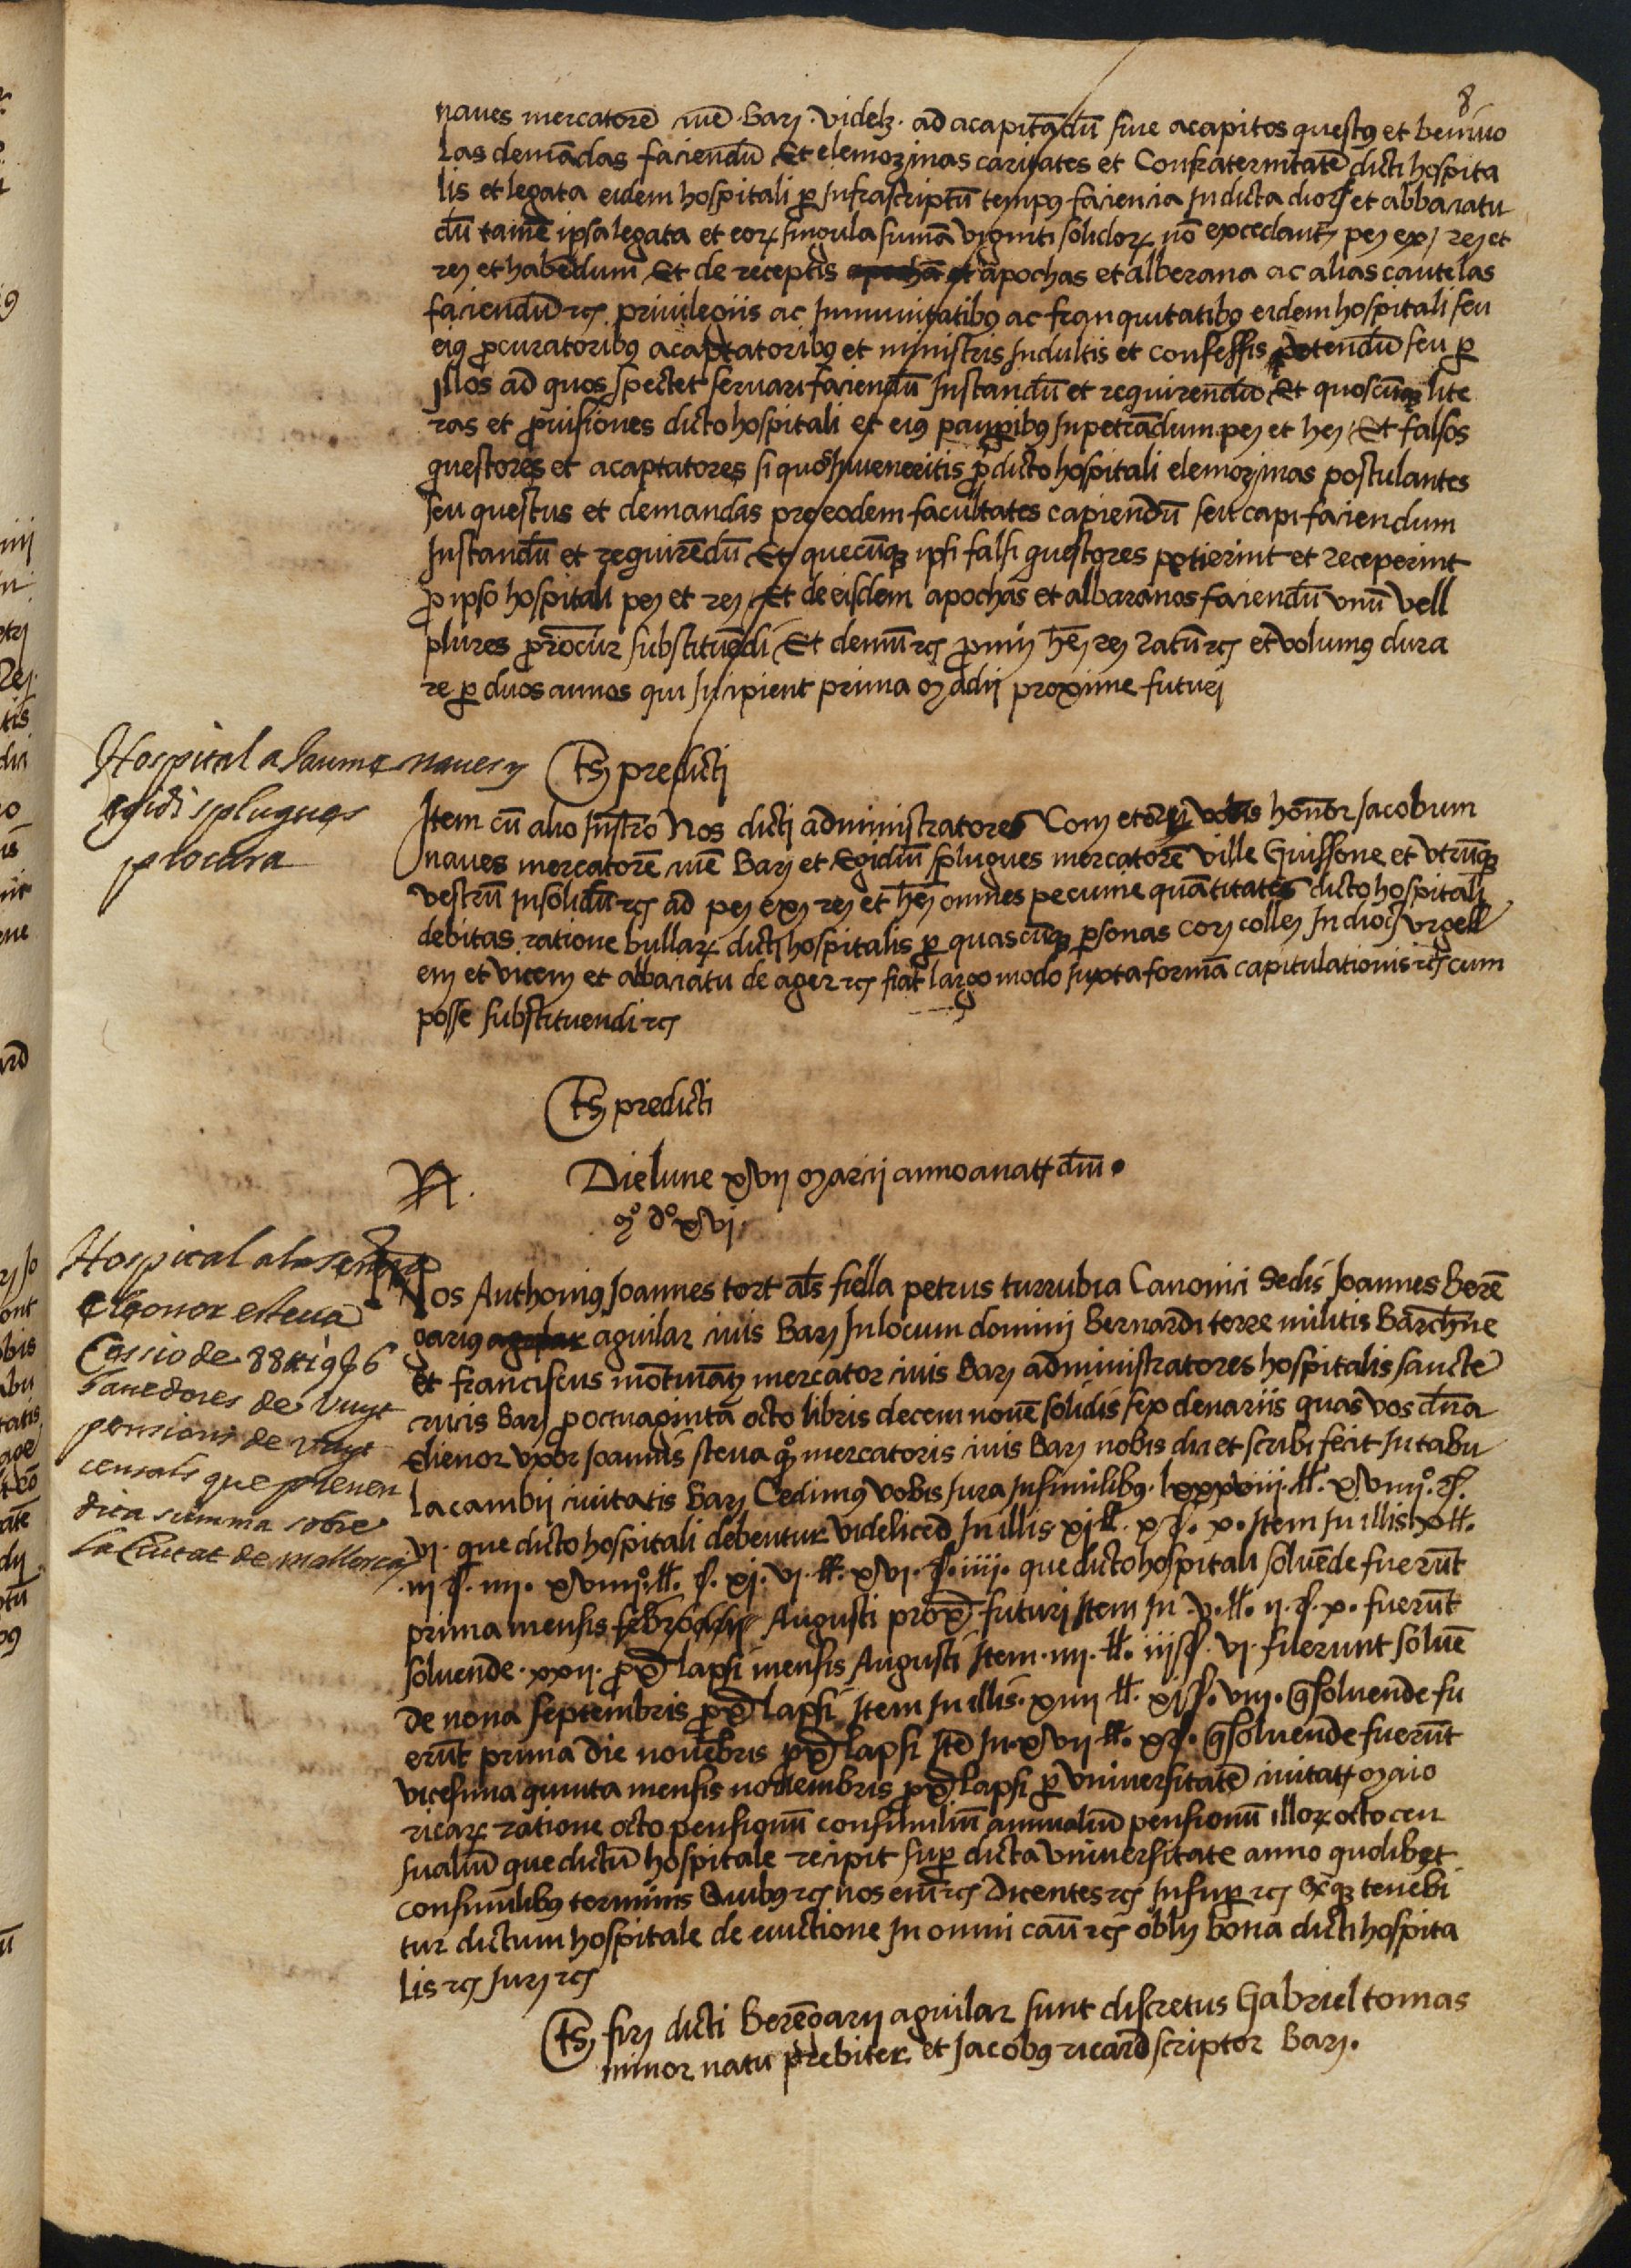 8
naues mercatorē ciuē Barͫ. videlz. ad acapitādū siue acapitos questꝯ et baciuo
las demādas faciendū Et elemozinas caritates et Confraternitatē dicti hospita
lis et legata eidem hospitali ꝑ Infrascriptū tempꝯ faciencia In dicta dioc et abbaciatu
dū tamē ipsa legata et eorꝝ singula sumā viginti solidorꝝ nō excedant peͫ exͫ reͫ et
reͫ et habēdum Et de receptis apochas et alberana ac alias cautelas
faciendū rͨ priuilegiis ac Inmunitatibꝯ ac franquitatibꝯ eidem hospitali seu
eiꝯ ꝓcuratoribꝯ acaptatoribꝯ et ministris Indultis et confessis petendū seu ꝑ
Illos ad quos spectet seruari faciendū Instandū et requirendū Et quoscūqꝫ lite
ras et ꝓuisiones dicto hospitali et eiꝯ pauꝑibꝯ Inpetrādum peͫ et heͫ Et falsos
questores et acaptatores si quos Inueneritis ꝓ dicto hospitali elemozinas postulantes
seu questus et demandas pro eodem facultates capiendū seu capi faciendum
Instandū et requirēdū Et quecūqꝫ ipsi falsi questores petierint et receperint
ꝓ ipso hospitali peͫ et reͫ Et de eisdem apochas et albaranos faciendū vnū vell
plures procur substituēdi Et demū rͨ ꝓmͫ hēͫ reͫ ratū rͨ et volumꝯ dura
re ꝑ duos annos qui Incipient prima madii proxime futuri
Hospital a Jaume naues y
egidi splugues
procura
Ts predicti
Item cū alio Instro Nos dicti administratores Comͫ et oͬ vobis honor Jacobum
naues mercatorē ciuē Barͫ et Egidiū splugues mercatorē ville Guissone et vtrūqꝫ
vestrū Insolidū rͨ ad peͫ exͫ reͫ et hēͫ omnes pecunie quātitates dicto hospitali
debitas ratione bullarꝝ dicti hospitalis ꝑ quascūqꝫ ꝑsonas corͫ colleͫ In dioc vrgell
eͫ et viceͫ et abbaciatu de ager rͨ fiat largo modo Iuxta formā capitulationis rͨ cum
posse substituendi rͨ
Ts predicti
Die lune xvij marcij anno a natt dn̄i
mº dº xvj
Hospital a la senyora
elionor esteua
Cessio de 88 lt 19 s 6
hauedores de vuyt
pensions de vuyt
censals que prenen
dita summa sobre
la Ciutat de mallorca
Nos Anthoniꝯ Joannes tort als fiella petrus turrubia Canonici Sedis Joannes Berē
gariꝯ aguilar ciuis Barͫ In locum domini Bernardi terre militis Barchn̄e
et franciscus mōtmāy mercator ciuis Barͫ administratores hospitalis sancte
crucis Barͫ ꝓ octuaginta octo libris decem nouē solidis sex denariis quas vos dn̄a
elienor vxor Joannis steua qº mercatoris ciuis Barͫ nobis dici et scribi fecit In tabu
la cambij ciuitatis Barͫ Cedimꝯ vobis Iura Insimilibꝯ lxxxviij. ll. xviiijº. s.
vj. que dicto hospitali debentur videliced In illis xj ll. x s. x. Item In illis x ll.
iij s. iiij. xviiijº. ll. s. xj. vj. ll. xvj. s. iiij. que dicto hospitali soluēde fuerūt
prima mensis Augusti prox̄ futuri Item In v. ll. ij. s. x. fuerūt
soluende. xxij. ꝓx̄ lapsi mensis Augusti Item. iiij. ll. iij s. vj. fuerunt soluē
de nona septembris ꝓx̄ lapsi Item In illis. xiiij ll. xj s. viij. q soluende fu
erūt prima die nouēbris ꝓx̄ lapsi Itē In. xvij ll. x s. q soluende fuerūt
vicesima quinta mensis nouembris ꝓx̄ lapsi ꝑ vniuersitatē ciuitatt maio
ricarꝝ ratione octo pensionū consimiliū annualiū pensionū illorꝝ octo cen
sualiū que dictū hospitale recipit suꝑ dicta vniuersitate anno quolibet
consimilibꝯ terminis Quibꝯ rͨ nos enī rͨ Dicentes rͨ Insuꝑ rͨ Exqꝫ tenebi
tur dictum hospitale de euictione In omni caū rͨ obliͫ bona dicti hospita
lis rͨ Iurͫ rͨ
Ts firͫ dicti Berēgarij aguilar sunt discretus Gabriel tomas
minor natu prebiter et Jacobꝯ ricard scriptor Barͫ.